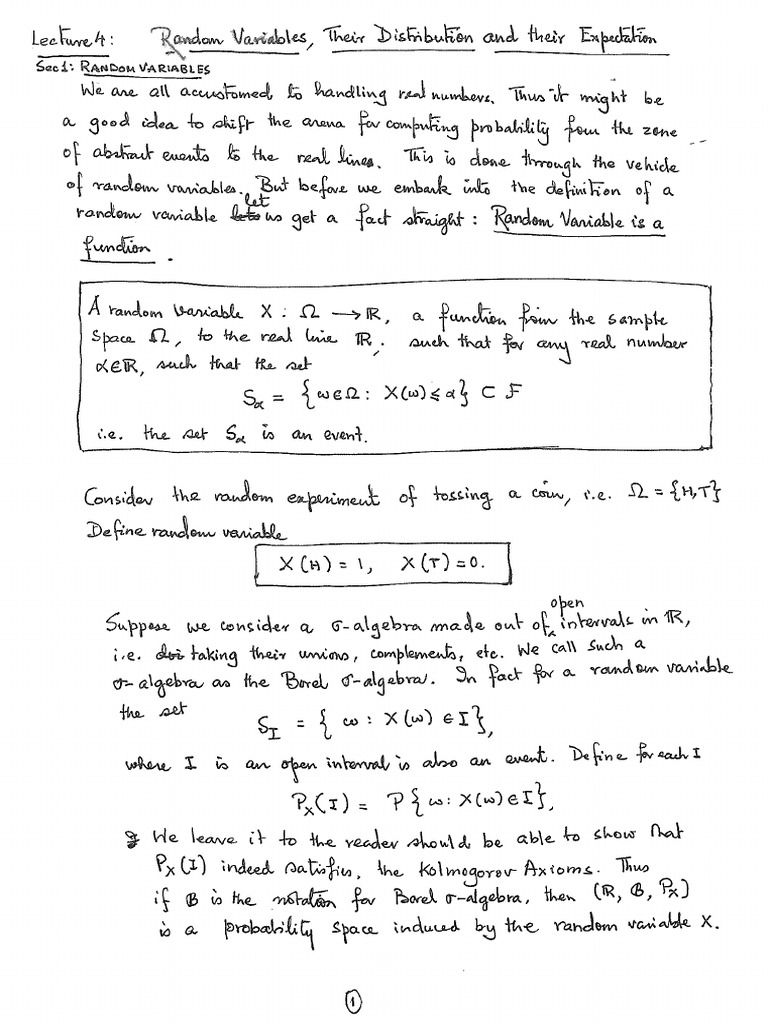 Lecture 4: Random Variables, Their Distribution and their Expectation
Sec 1: RANDOM VARIABLES
We are all accustomed to handling real numbers. Thus it might be
a good idea to shift the arena for computing probability from the zone
of abstract events to the real lines. This is done through the vehicle
of random variables. But before we embark into the definition of a
random variable let us get a fact straight: Random Variable is a
function.
A random variable X: Ω → ℝ, a function from the sample
space Ω, to the real line ℝ, such that for any real number
α∈ℝ, such that the set
Sα = {ω∈Ω: X(ω) ≤ α} ⊂ F
i.e. the set Sα is an event.
Consider the random experiment of tossing a coin, i.e. Ω = {H,T}
Define random variable
X(H) = 1, X(T) = 0.
Suppose we consider a σ-algebra made out of open intervals in ℝ,
i.e. taking their unions, complements, etc. We call such a
σ-algebra as the Borel σ-algebra. In fact for a random variable
the set
S_I = { ω: X(ω) ∈ I },
where I is an open interval is also an event. Define for each I
P_X(I) = P{ω: X(ω) ∈ I},
We leave it to the reader should be able to show that
P_X(I) indeed satisfies, the Kolmogorov Axioms. Thus
if B is the notation for Borel σ-algebra, then (ℝ, B, P_X)
is a probability space induced by the random variable X.
1